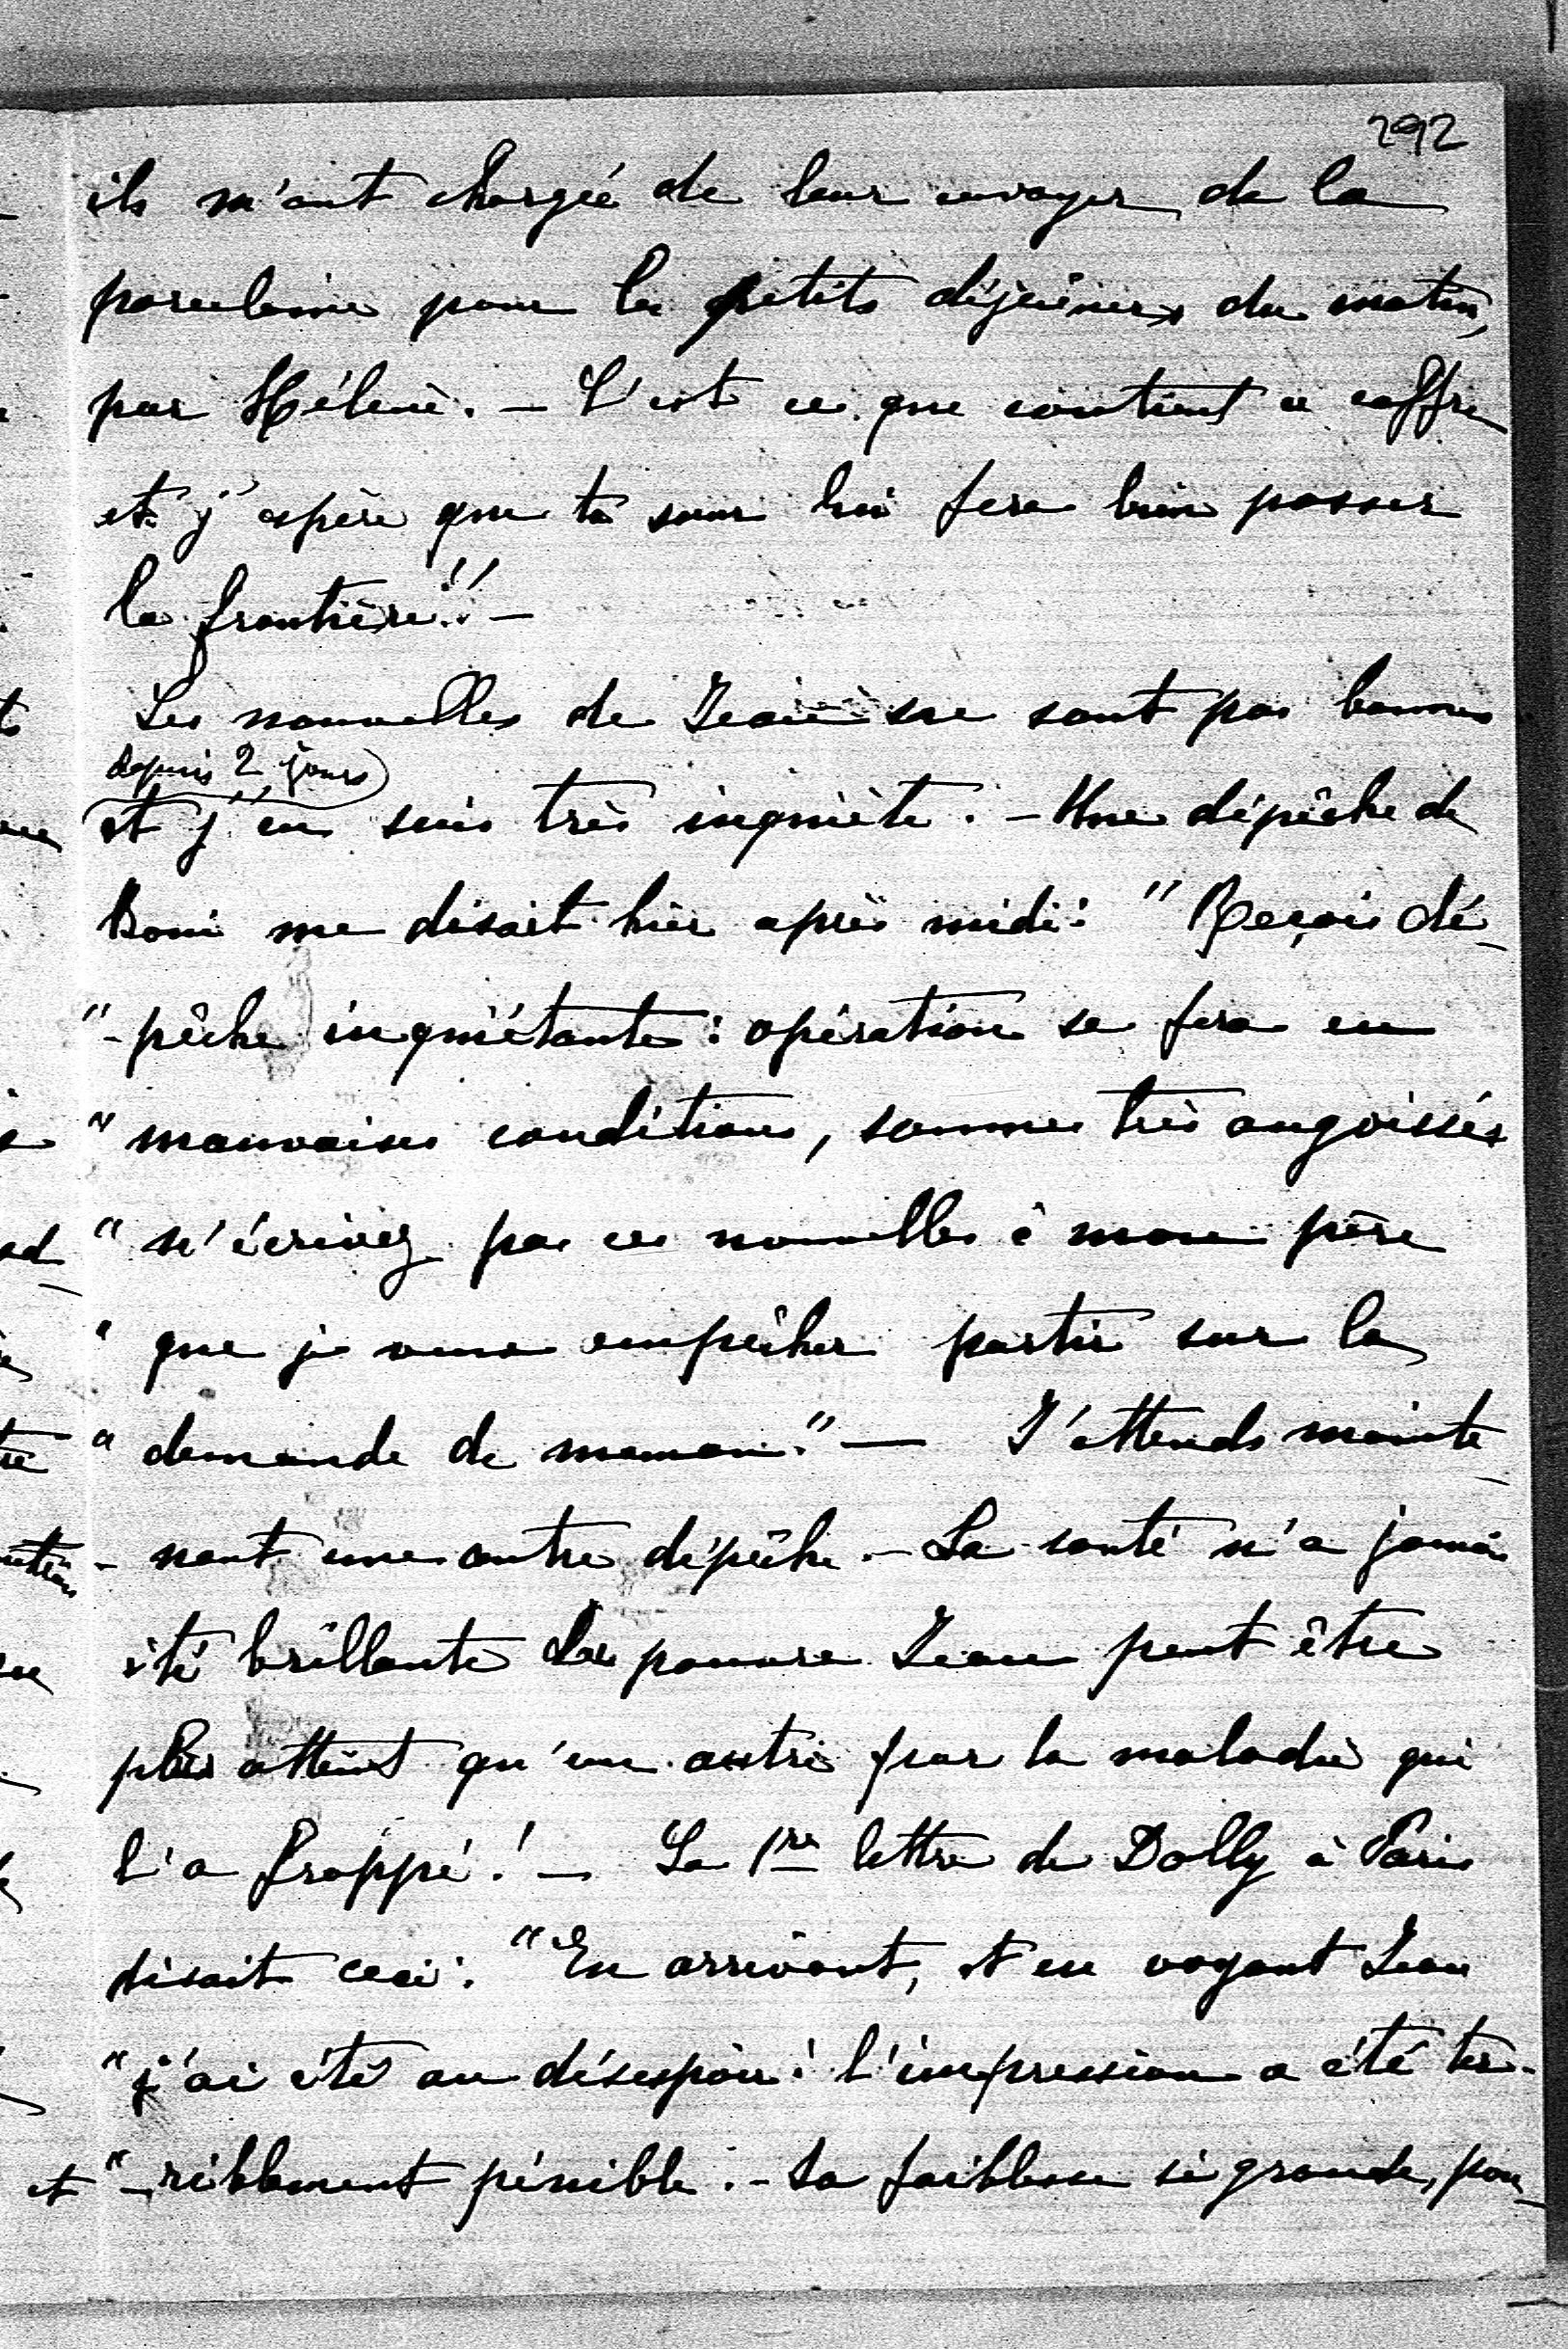 292
ils m'ont chargée de leur envoyer de la
porcelaine pour les petits déjeuners du matin,
par Hélène. – C'est ce que contient ce coffre
et j'espère que ta sœur lui fera bien passer
la frontière!" –
Les nouvelles de Jean ne sont pas bonnes
depuis 2 jours
et j'en suis très inquiète. – Une dépêche de
Boni me disait hier après midi: "Reçois dé-
"-pêche inquiétante: opération se fera en
"mauvaises conditions, sommes très angoissés
"n'écrivez pas ces nouvelles à mon père
"que je veux empêcher partir sur la
"demande de maman." — J'attends mainte-
-nant une autre dépêche. – La santé n'a jamais
été brillante du pauvre Jean peut être
plus atteint qu'un autre par la maladie qui
l'a frappé! – La 1re lettre de Dolly à Paris
disait ceci: "En arrivant, et en voyant Jean
"j'ai été au désespoir: l'impression a été ter-
"-riblement pénible. – Sa faiblesse si grande, pou-